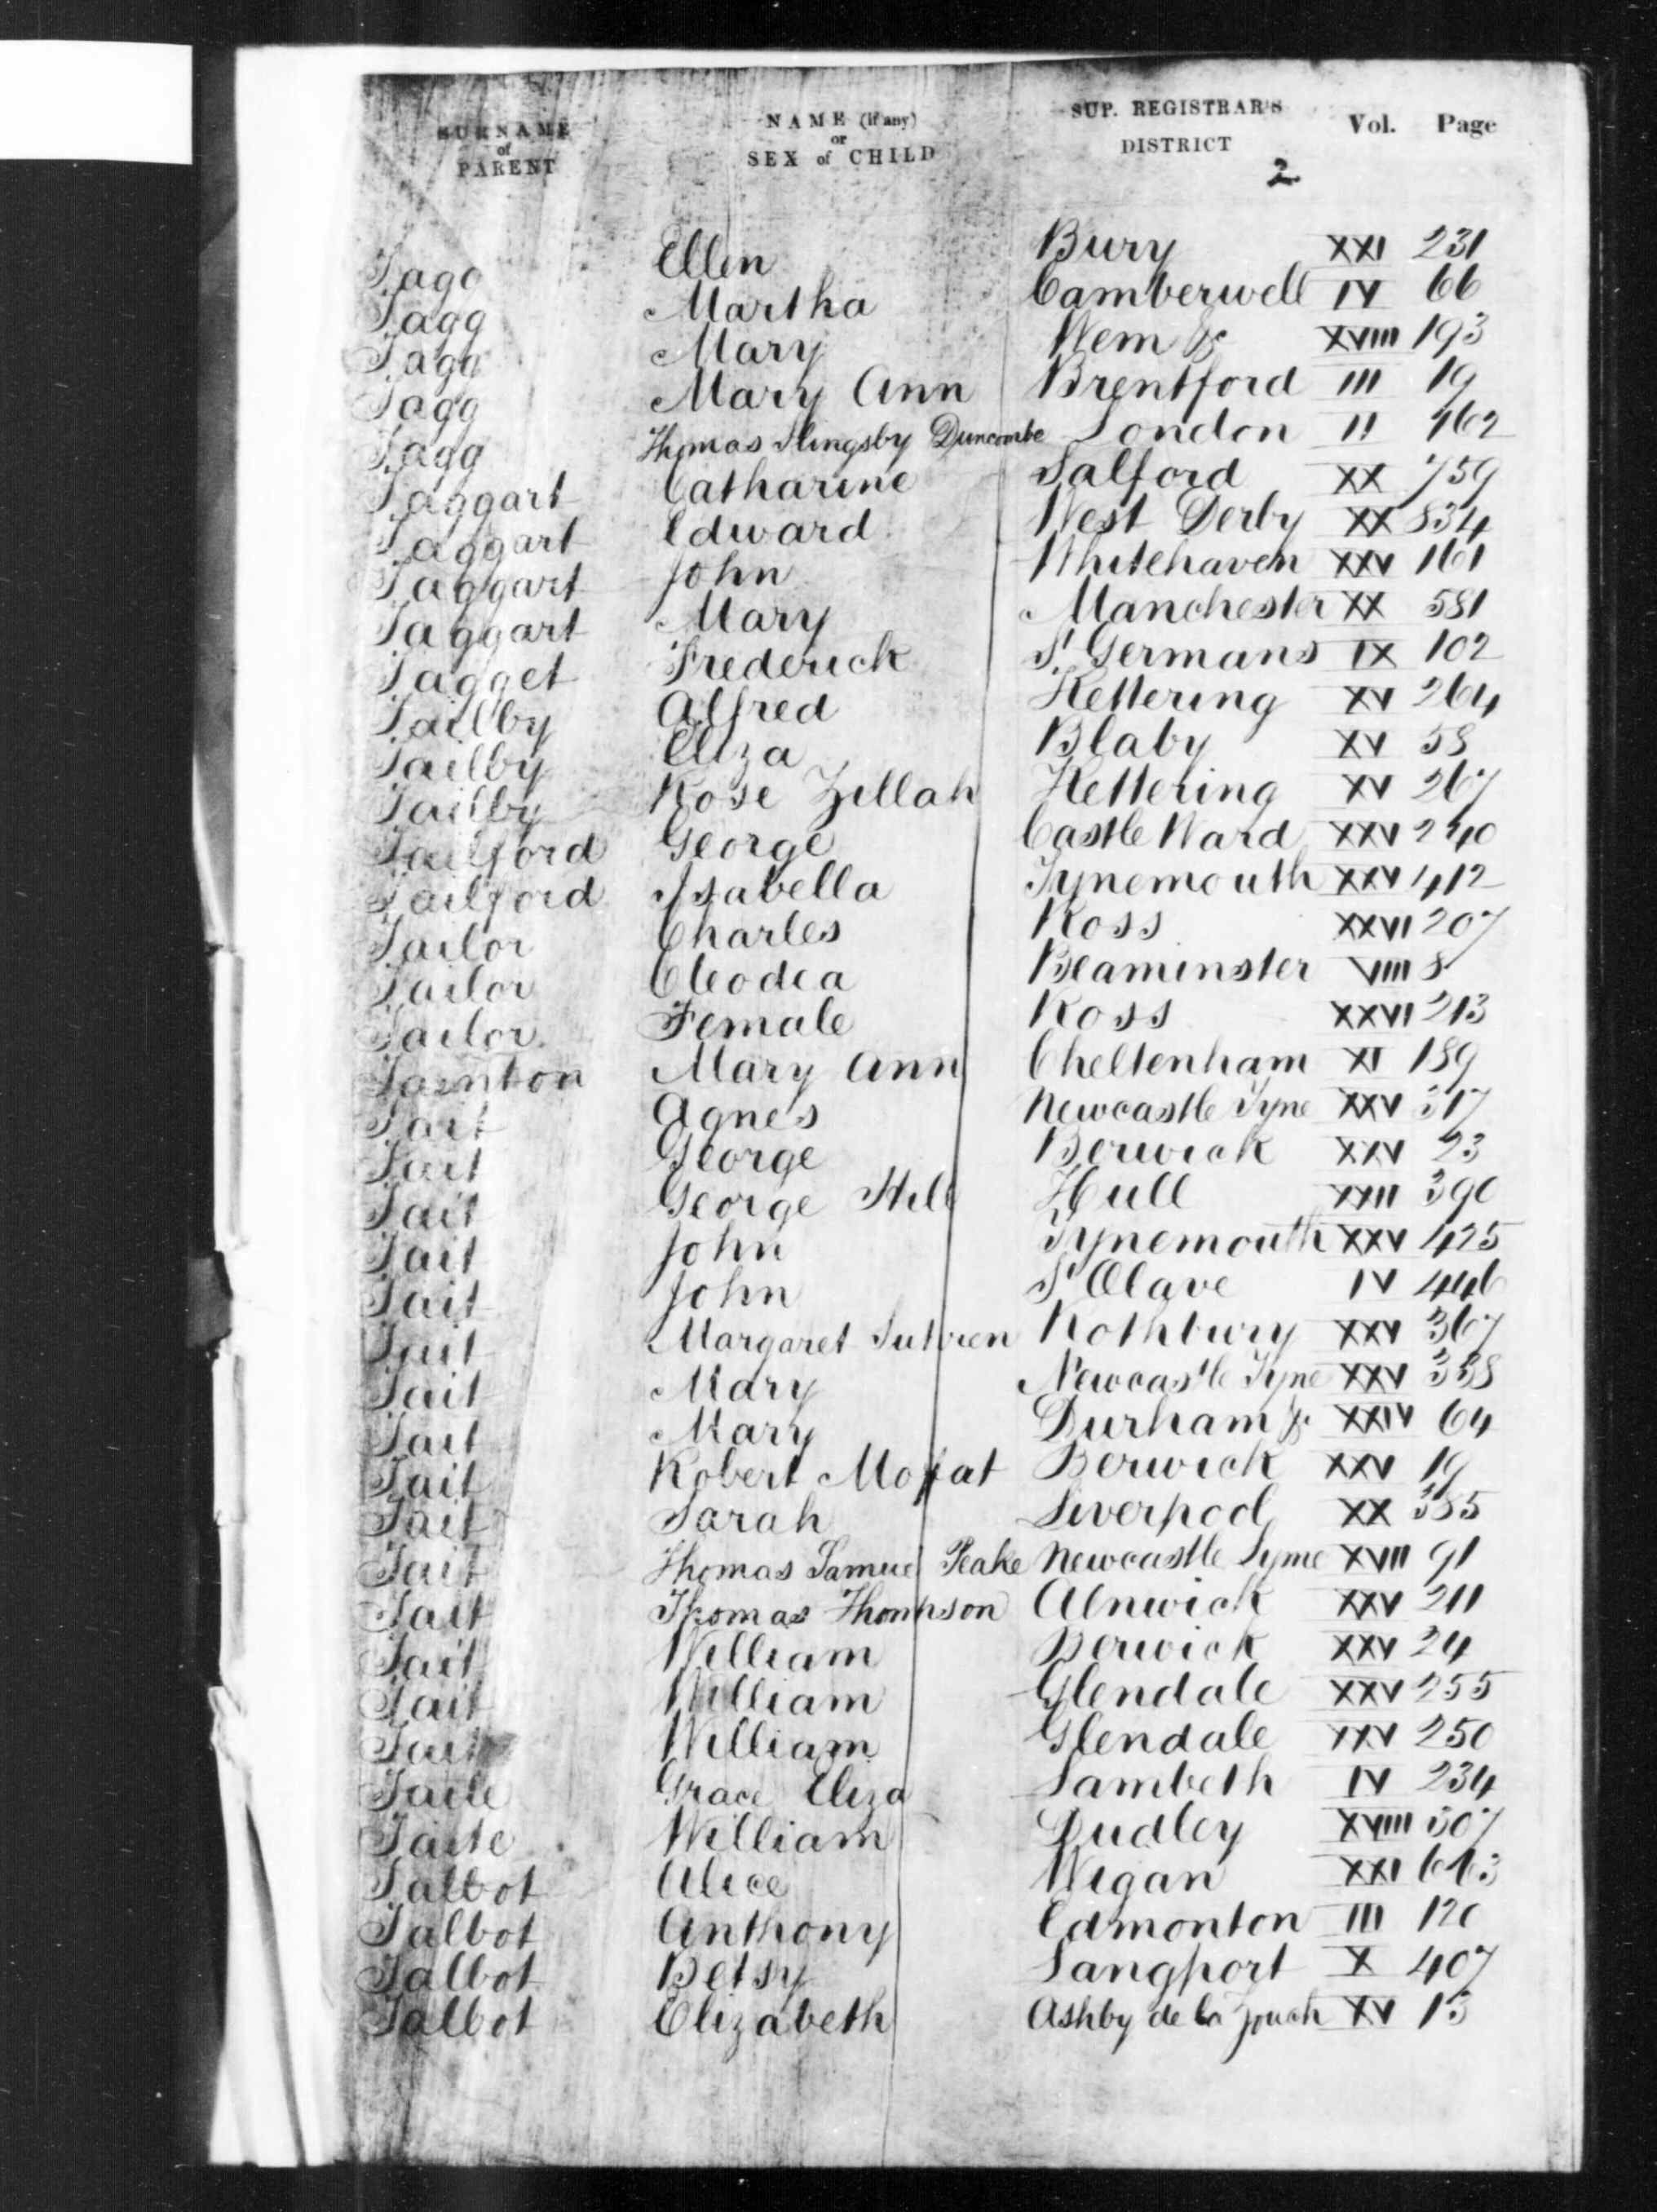 SURNAME of PARENT NAME (if any) or SEX of CHILD SUP. REGISTRAR'S DISTRICT Vol. Page
2
Tagg Ellen Bury XXI 231
Tagg Martha Camberwell IV 66
Tagg Mary Wem &c XVIII 193
Tagg Mary Ann Brentford III 19
Tagg Thomas Slingsby Duncombe London II 162
Taggart Catharine Salford XX 759
Taggart Edward West Derby XX 834
Taggart John Whitehaven XXV 161
Taggart Mary Manchester XX 581
Tagget Frederick St Germans IX 102
Tailby Alfred Kettering XV 264
Tailby Eliza Blaby XV 58
Tailby Rose Zillah Kettering XV 267
Tailford George Castle Ward XXV 240
Tailford Isabella Tynemouth XXV 412
Tailor Charles Ross XXVI 207
Tailor Cleodea Beaminster VIII 8
Tailor Female Ross XXVI 213
Tainton Mary Ann Cheltenham XI 189
Tait Agnes Newcastle Tyne XXV 317
Tait George Berwick XXV 23
Tait George Hill Hull XXII 390
Tait John Tynemouth XXV 425
Tait John St Olave IV 446
Tait Margaret Rothbury XXV 367
Tait Mary Newcastle Tyne XXV 338
Tait Mary Durham &c XXIV 64
Tait Robert Moffat Berwick XXV 19
Tait Sarah Liverpool XX 385
Tait Thomas Samuel Peake Newcastle Lyme XVII 91
Tait Thomas Thompson Alnwick XXV 211
Tait William Berwick XXV 24
Tait William Glendale XXV 255
Tait William Glendale XXV 250
Taite Grace Eliza Lambeth IV 234
Taite William Dudley XVIII 307
Talbot Alice Wigan XXI
Talbot Anthony Edmonton III 120
Talbot Betsy Langport X 407
Talbot Elizabeth Ashby de la Zouch XV 13